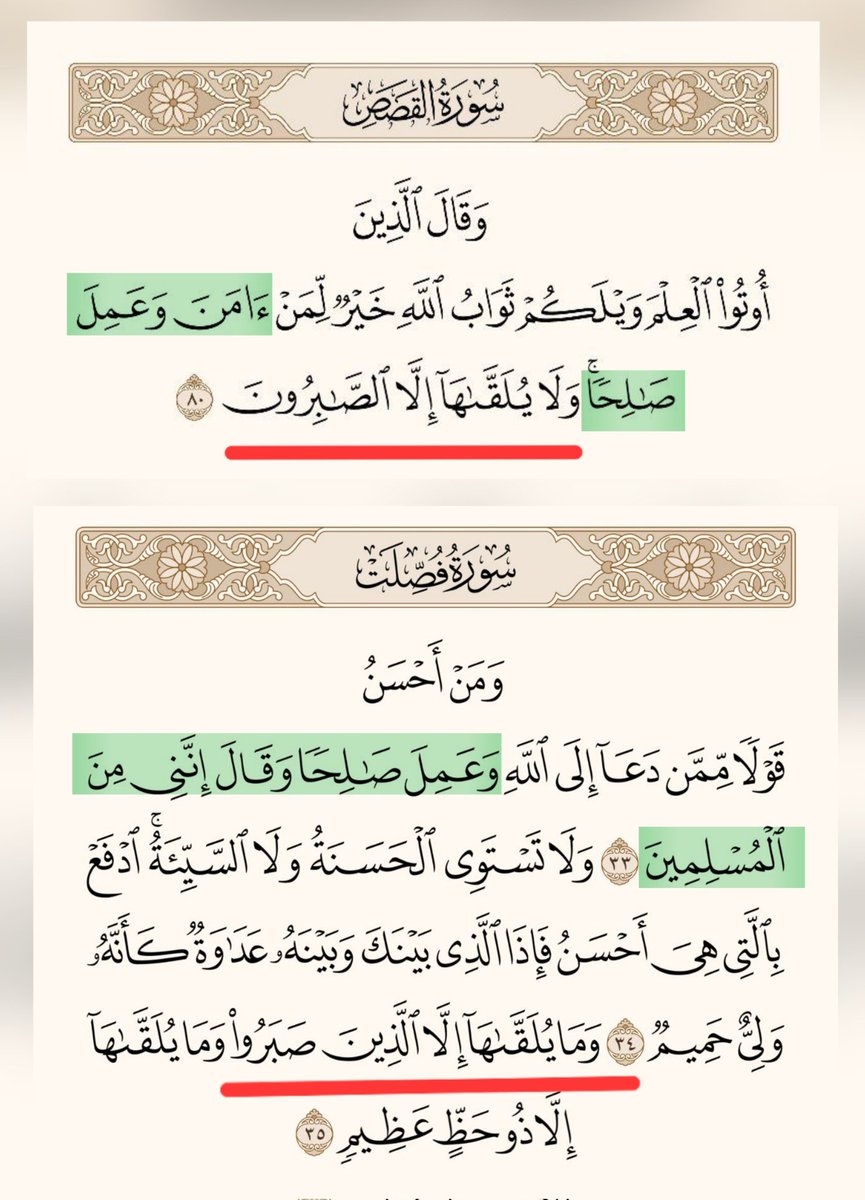 سُورَةُ القَصَصِ
وَقَالَ ٱلَّذِينَ
أُوتُوا۟ ٱلْعِلْمَ وَيْلَكُمْ ثَوَابُ ٱللَّهِ خَيْرٌۭ لِّمَنْ ءَامَنَ وَعَمِلَ
صَـٰلِحًۭا ۚ وَلَا يُلَقَّىٰهَآ إِلَّا ٱلصَّـٰبِرُونَ ٨٠
سُورَةُ فُصِّلَتْ
وَمَنْ أَحْسَنُ
قَوْلًۭا مِّمَّن دَعَآ إِلَى ٱللَّهِ وَعَمِلَ صَـٰلِحًۭا وَقَالَ إِنَّنِى مِنَ
ٱلْمُسْلِمِينَ ٣٣ وَلَا تَسْتَوِى ٱلْحَسَنَةُ وَلَا ٱلسَّيِّئَةُ ۚ ٱدْفَعْ
بِٱلَّتِى هِىَ أَحْسَنُ فَإِذَا ٱلَّذِى بَيْنَكَ وَبَيْنَهُۥ عَدَٰوَةٌۭ كَأَنَّهُۥ
وَلِىٌّ حَمِيمٌۭ ٣٤ وَمَا يُلَقَّىٰهَآ إِلَّا ٱلَّذِينَ صَبَرُوا۟ وَمَا يُلَقَّىٰهَآ
إِلَّا ذُو حَظٍّ عَظِيمٍۢ ٣٥